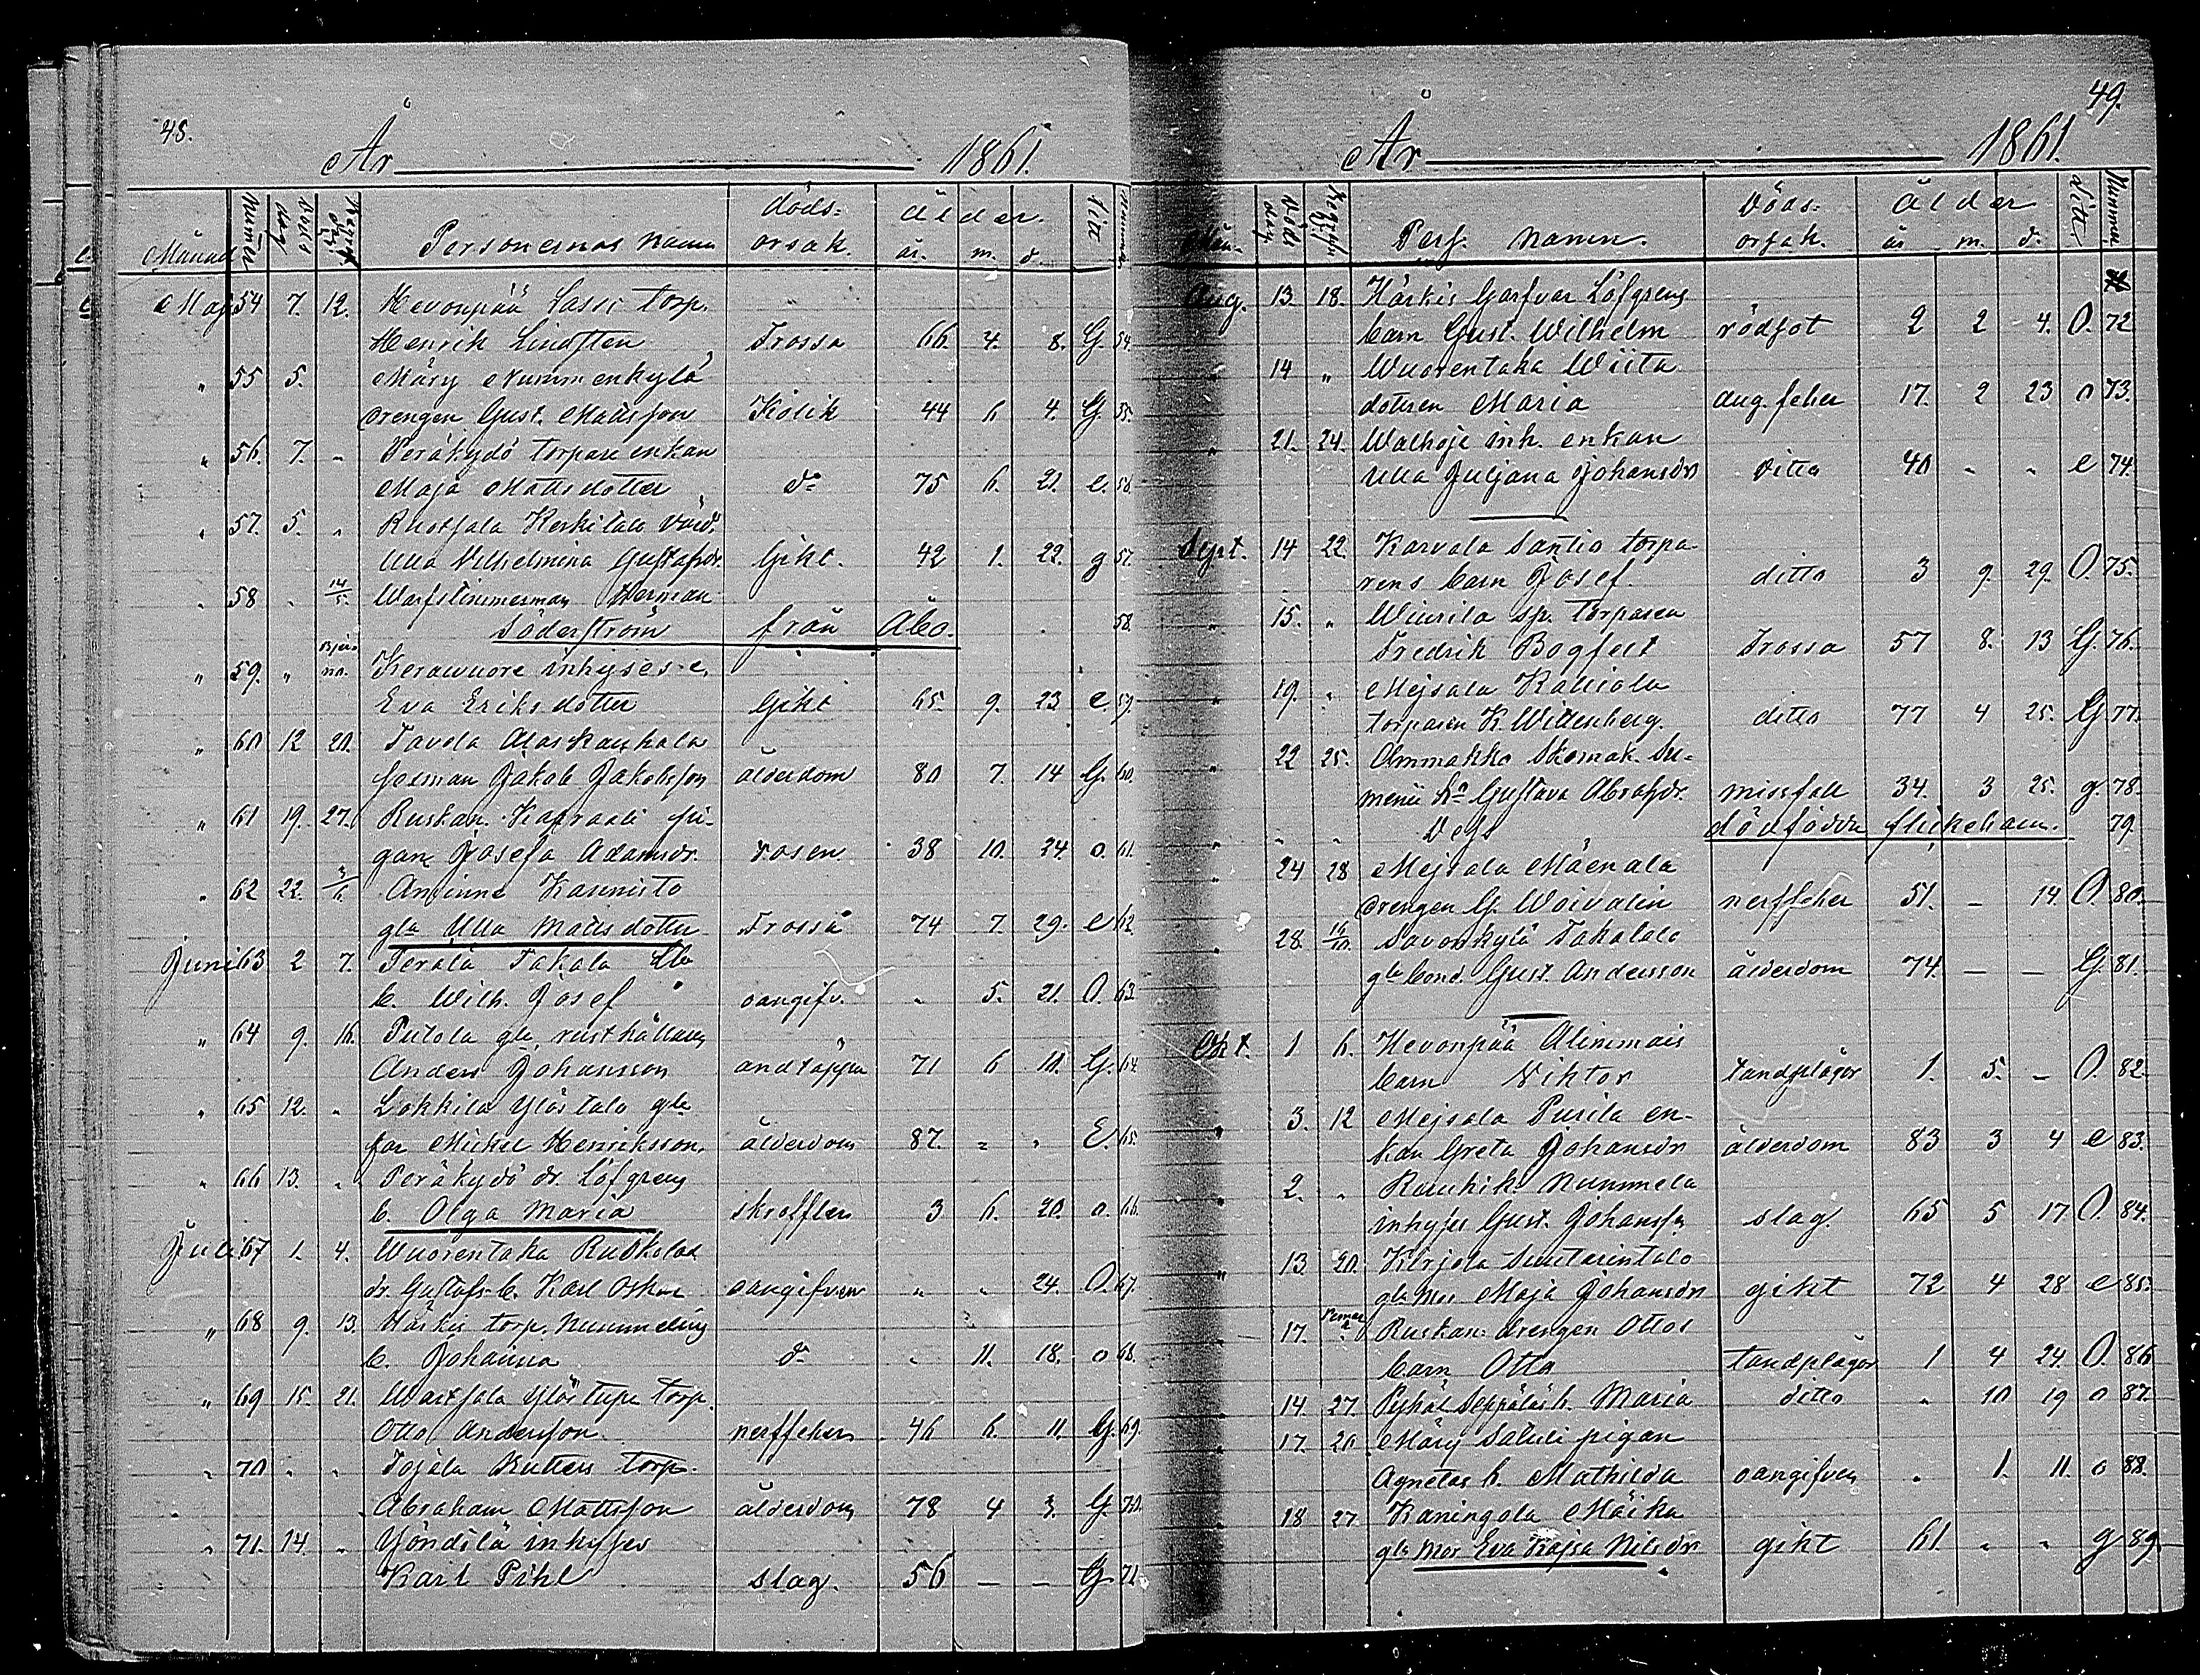 48.
År 1861.
Månad Numer Döds dag Begrafn. dag Personernas namn döds= orsak. ålder. år. m. d. Litt Nummer
Maj 54 7. 12. Hevonpää Lassi torp.
Henrik Lindsten Frossa 66. 4. 8. G. 54.
" 55 5. Märy Nummenkylä
drengen Gust. Mattsson Kolik 44 6 4. G. 55.
" 56. 7. " Peräkydö torpare enkan
Maja Mattsdotter do 75 6. 21. e. 56.
" 57. 5. " Ruotsala Keskitalo värd.
Ulla Vilhelmina Gustafsdr. Gikt. 42 1. 22. g 57.
" 58 " 14/5. Warfstimmerman Herman
Söderström från Åbo. 58.
" 59. " Kerawuore inhyses e.
Eva Eriksdotter Gikt 65. 9. 23 e. 59.
" 60 12 20. Tavola Alaskauhala
Jakob Jakobsson ålderdom 80 7. 14 G. 60.
" 61 19. 27. Ruskan Kapraali pi-
gan Josefa Adamsdr. rosen 38 10. 24. o. 61.
" 62 22. 3/6. Aninne Kaunisto
gla Ulla Mattsdotter Frossa 74 7. 29. e 62.
Juni 63 2 7. Terälä Takala
b. Wilh. Josef oangifv. " 5. 21. O. 63.
" 64 9. 16. Putola gla. rusthållaren
Anders Johansson andtäppa 71 6 11. G. 64.
" 65 12. " Lokkila Ylöstalo gla
far Michel Henriksson. ålderdom 87. " " E. 65.
" 66 13. " Peräkydö dr. Löfgrens
b. Olga Maria skrofflen 3 6. 20. o. 66.
Juli 67 1. 4. Wuorentaka Ruokolaa
dr. Gustafs b. Karl Oskar oangifven " " 24. O. 67.
" 68 9. 13. Härkis torp. Nummelins
b. Johanna do " 11. 18. o 68.
" 69 15. 21. Wartsala Ylöstupa torp.
Otto Andersson. nerffeber 46 6. 11. G. 69.
" 70 " " Tojala Kutteri torp.
Abraham Mattsson ålderdom 78 4 3. G. 70.
" 71. 14. " Yöndilä inhyses
Karl Pihl slag. 56 — — G 71.
49.
År 1861.
Mån. Döds dag Begrafn. Pers. namn. Döds- orsak. ålder år m. d. Litt. Nummer
Aug. 13. 18. Härkis Garfvar Löfgrens
barn Gust. Wilhelm rödsot 2 2 4. O. 72
" 14 " Wuorentaka Wiita
dottren Maria aug. feber 17. 2 23 o 73.
" 21. 24. Walhoje inh. enkan
Ulla Juljana Johansdr ditto 40 " " e 74.
Sept. 14 22. Karvala Santio torpa-
rens barn Josef. ditto 3 9. 29. O. 75.
" 15. " Wiurila sp. torparen
Fredrik Bogfelt Frossa 57 8. 13 G. 76.
" 19. " Mejsala Kalliola
torparen K. Wittenberg. ditto 77 4 25. G 77.
" 22 25. Ammakko Skomak. Su-
menii ho Gustava Abrahdr. missfall 34. 3 25. g 78.
" " " Dess dödfödda flickebarn. 79.
" 24 28 Mejsala Mäenala
drengen G. Woivalin nerffeber 51. — 14 O 80.
" 28. Savonkylä Takatalo
gle bond. Gust. Andersson ålderdom 74. — — G. 81.
Okt. 1 6. Hevonpää Alinimais
barn Viktor tandplågor 1. 5. — O. 82.
" 3. 12 Mejsala Purila en-
kan Greta Johansdr ålderdom 83 3 4 e 83.
" 2. " Nummela
inhyses Gust. Johansson slag. 65 5 17 O. 84.
" 13. 20. Kirjola Suutarintalo
gla mor Maja Johansdr gikt 72 4 28 e 85.
17. Ruskan. drengen Ottos
barn Otto tandplågor 1 4 24. O. 86
14. 27. Pyhäl Seppäläs b. Maria ditto " 10 19 o 87.
17. 20 Märy Saluli pigan
Agnetas b. Mathilda oangifven " 1. 11. o 88.
18 27 Kaningola Mäika
gla mor Eva Kajsa Nilsdr gikt 61 " " g 89.